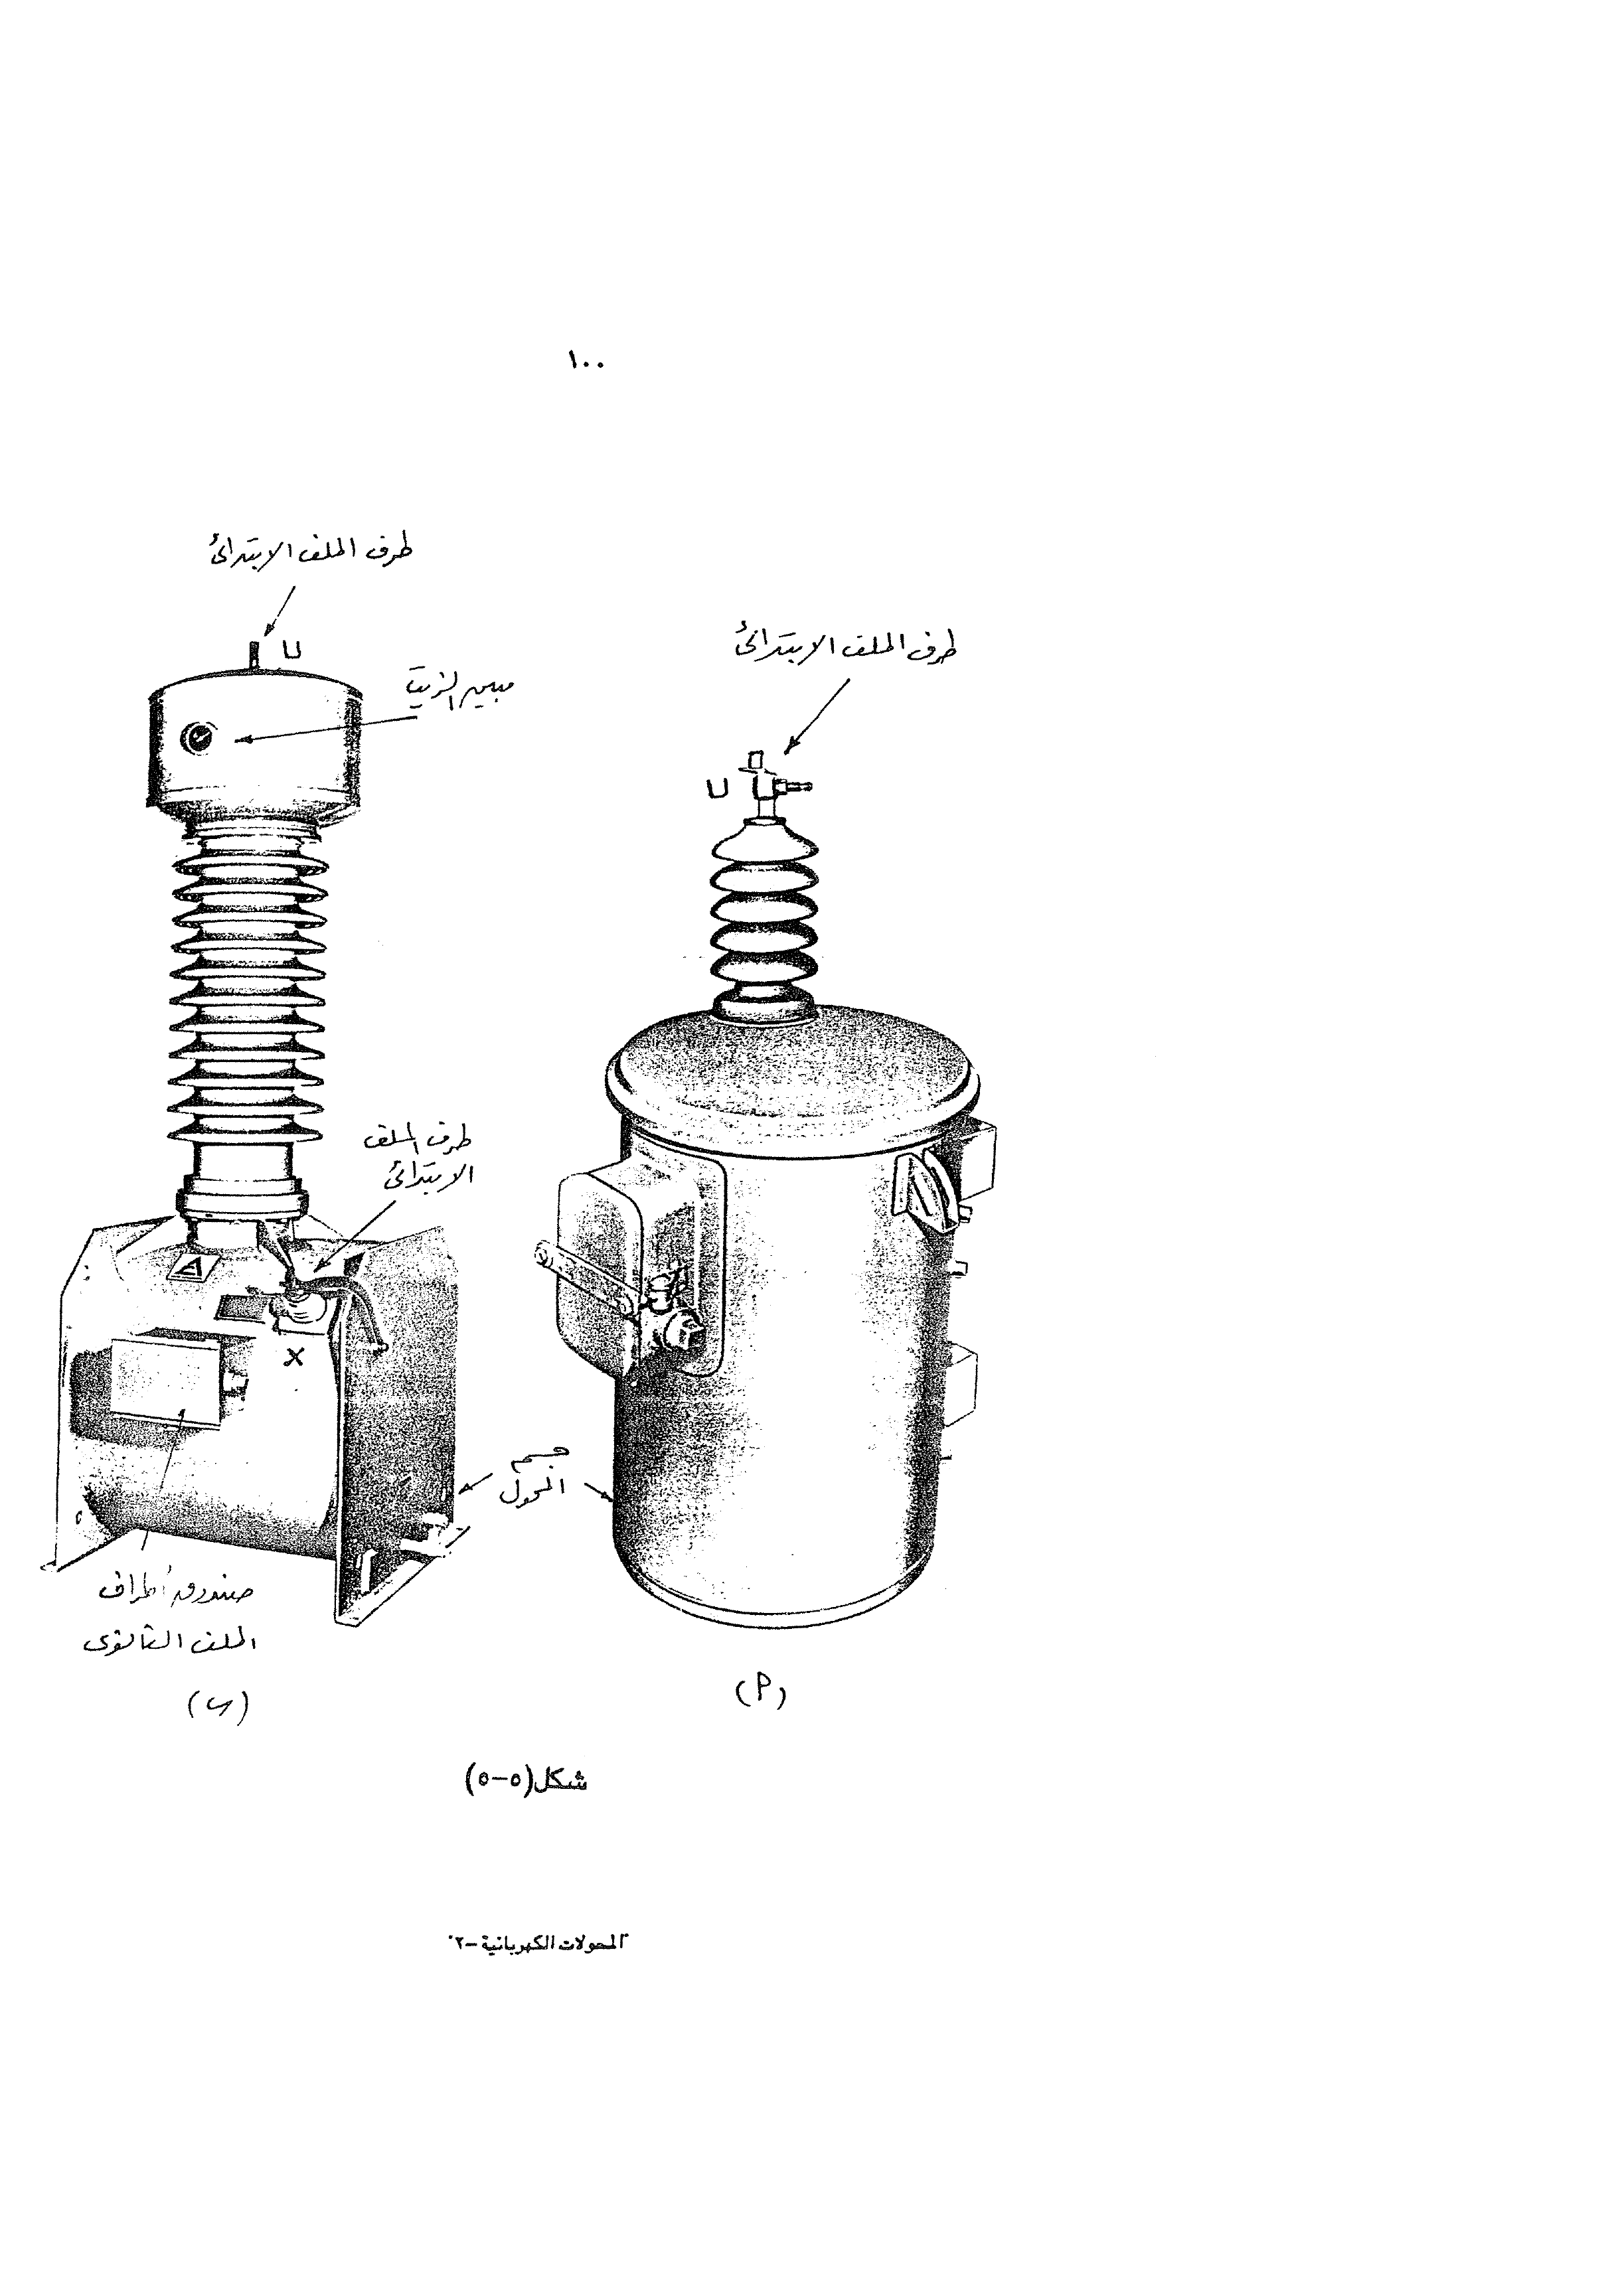 ١٠٠
طرف الملف الابتدائى
U
مبين الزيت
طرف الملف الابتدائى
U
طرف الملف
الابتدائى
X
جسم
المحول
صندوق أطراف
الملف الثانوى
(ب)
(أ)
شكل(٥-٥)
"المحولات الكهربائية-٢"